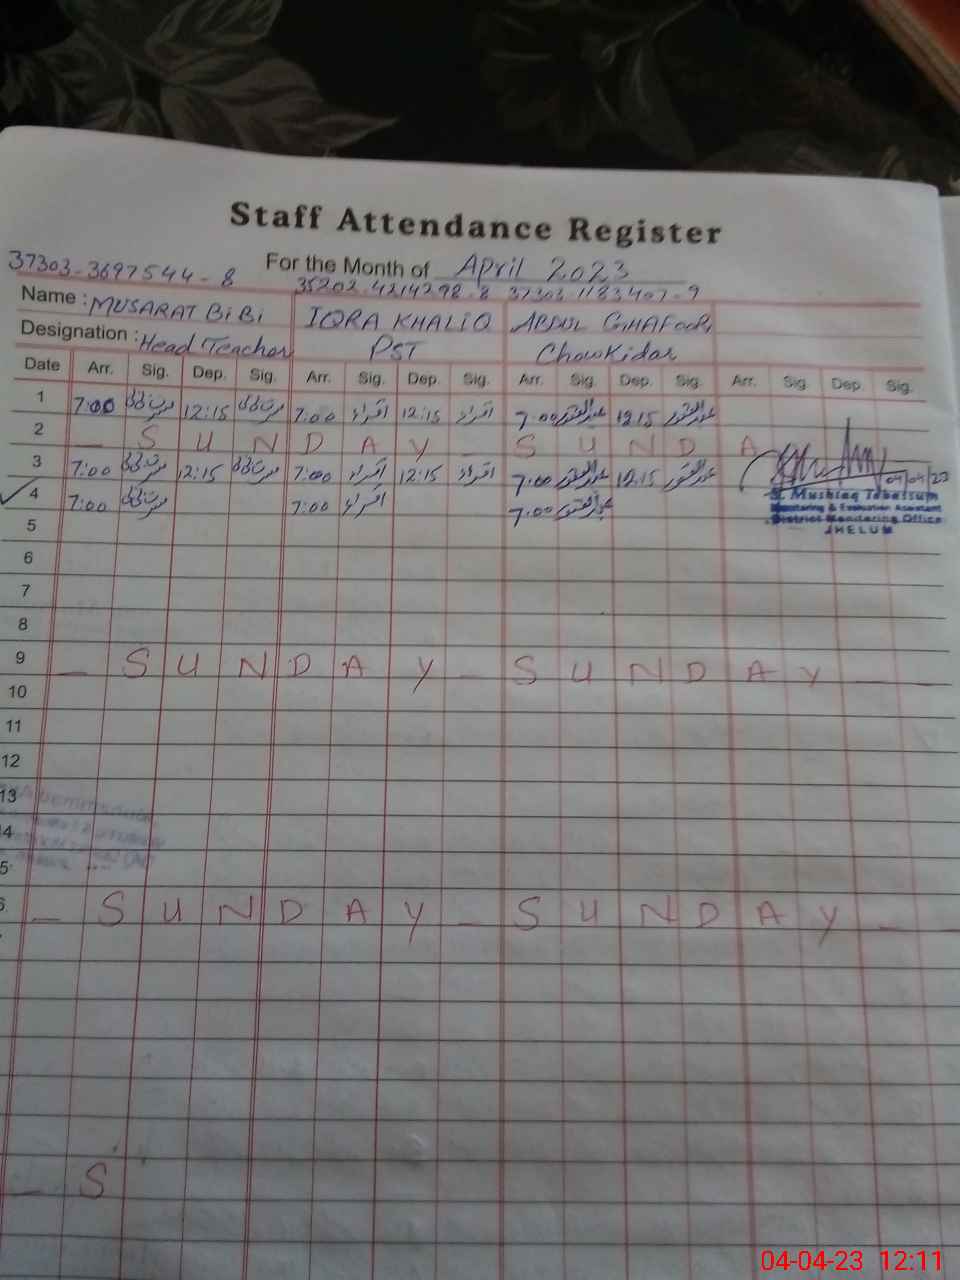 Staff Attendance Register
37303-3697544-8 For the Month of April 2023
35202-4214298-8 37303-1183407-9
Name : MUSARAT BiBi IQRA KHALIQ ABDUL GHAFOOR
Designation : Head Teacher PST Chowkidar
Date Arr. Sig. Dep. Sig. Arr. Sig. Dep. Sig. Arr. Sig. Dep. Sig. Arr. Sig. Dep. Sig.
1 7:00 مسرت بی بی 12:15 مسرت بی بی 7:00 اقراء 12:15 اقراء 7:00 عبدالغفور 12:15 عبدالغفور
2 — S U N D A Y — S U N D A
3 7:00 مسرت بی بی 12:15 مسرت بی بی 7:00 اقراء 12:15 اقراء 7:00 عبدالغفور 12:15 عبدالغفور
04/04/23
4 7:00 مسرت بی بی 7:00 اقراء 7:00 عبدالغفور
Mushtaq Tabassum
Monitoring & Evaluation Assistant
District Monitoring Office
JHELUM
5
6
7
8
9 — S U N D A Y — S U N D A Y — —
10
11
12
13
4
5
6 — S U N D A Y — S U N D A Y — —
— S
04-04-23 12:11